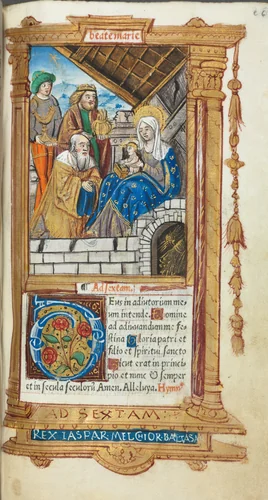 beate marie
Ad sextam.
Eus in adiutorium me-
um intende. Domine
ad adiuvandum me fe-
stina Gloria patri et
filio et spiritui sancto
Sicut erat in princi-
pio et nunc et semper
et in secula seculorū Amen. Alleluya. Hymn⁹
AD SEXTAM
REX IASPAR MELCHIOR BALTASAR